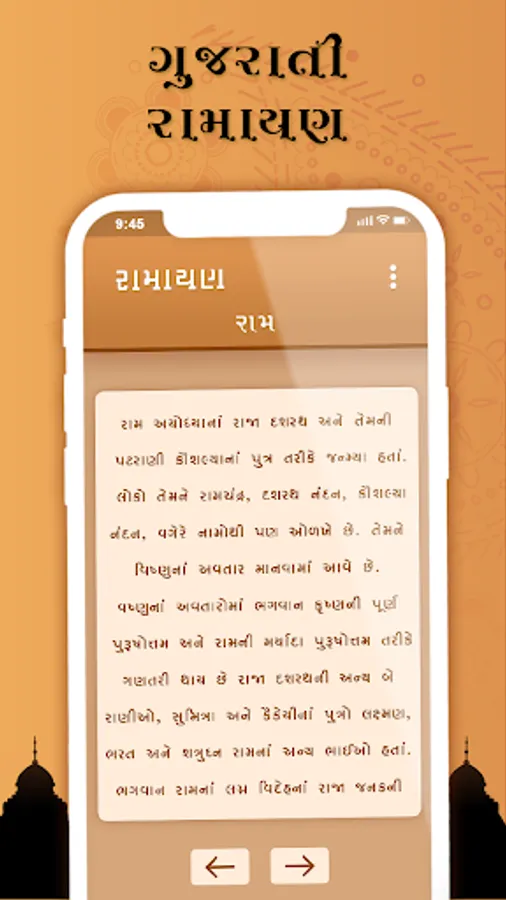 ગુજરાતી
રામાયણ
9:45
રામાયણ
રામ
રામ અયોધ્યાનાં રાજા દશરથ અને તેમની
પટરાણી કૌશલ્યાનાં પુત્ર તરીકે જન્મ્યા હતાં.
લોકો તેમને રામચંદ્ર, દશરથ નંદન, કૌશલ્યા
નંદન, વગેરે નામોથી પણ ઓળખે છે. તેમને
વિષ્ણુનાં અવતાર માનવામાં આવે છે.
વષ્ણુનાં અવતારોમાં ભગવાન કૃષ્ણની પૂર્ણ
પુરૂષોત્તમ અને રામની મર્યાદા પુરૂષોત્તમ તરીકે
ગણતરી થાય છે રાજા દશરથની અન્ય બે
રાણીઓ, સુમિત્રા અને કૈકેયીનાં પુત્રો લક્ષ્મણ,
ભરત અને શત્રુઘ્ન રામનાં અન્ય ભાઈઓ હતાં.
ભગવાન રામનાં લગ્ન વિદેહનાં રાજા જનકની